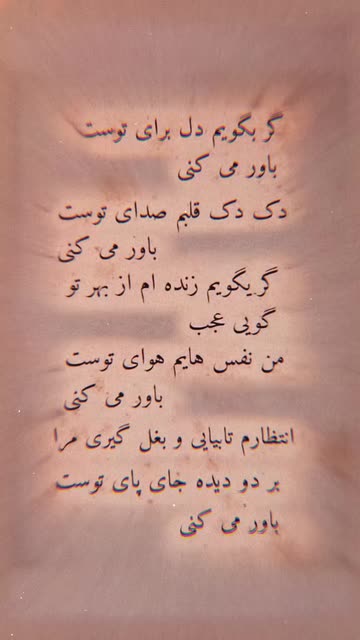 گر بگویم دل برای توست
باور می کنی
دک دک قلبم صدای توست
باور می کنی
گر یگویم زنده ام از بهر تو
گویی عجب
من نفس هایم هوای توست
باور می کنی
انتظارم تابیایی و بغل گیری مرا
بر دو دیده جای پای توست
باور می کنی